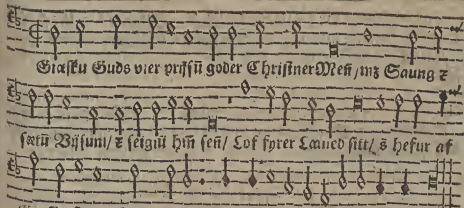 Giæsku Guds vier prijsũ goder Christiner Meñ/ mz Saung ꝛ
sætũ Vijsum/ ꝛ seigiũ hm̃ señ/ Lof fyrer Læaned sitt/ s̃ hefur af